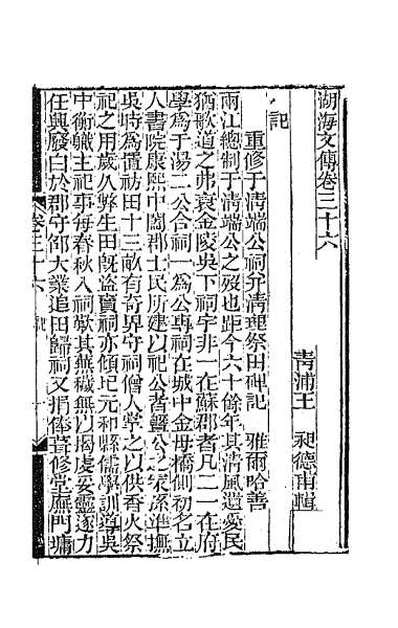 湖海文傳卷三十六
青浦王　昶德甫輯
記
重修于清端公祠并清理祭田碑記　雅爾哈善
兩江總制于清端公之歿也距今六十餘年其清風遺愛民
猶歌道之弗衰金陵吳下祠宇非一在蘇郡者凡二一在府
學爲于湯二公合祠一爲公專祠在城中金母橋側初名立
人書院康熙中闔郡士民所建以祀公者暨公之家孫準撫
吳時爲置祊田十三畝有奇界守祠僧人掌之以供香火祭
祀之用歲久弊生田旣盜賣祠亦傾圮元和縣儒學訓導吳
中衡職主祀事每春秋入祠歎其蕪穢無以揭虔妥靈遂力
任興廢白於郡守邵大業追田歸祠又捐俸葺修堂廡門墉
卷三十六　記